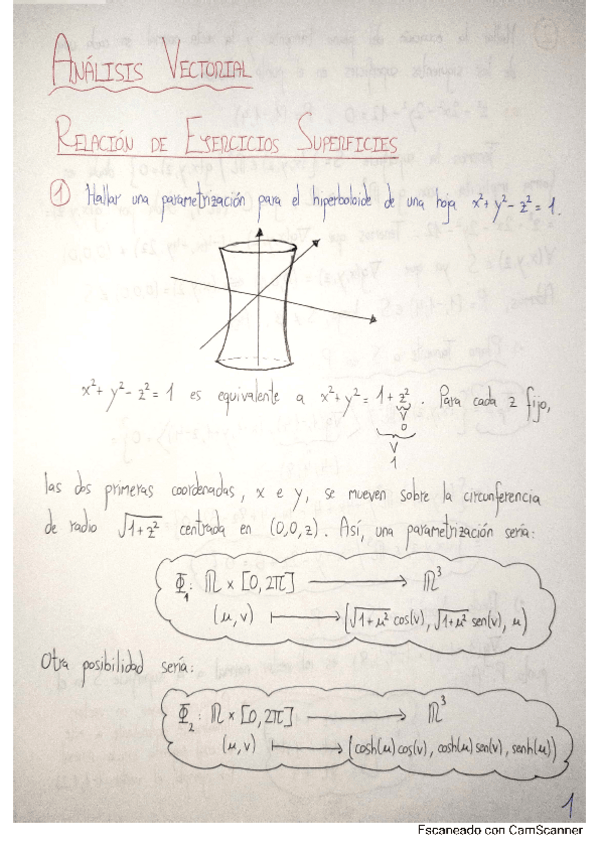 ANÁLISIS VECTORIAL
RELACIÓN DE EJERCICIOS SUPERFICIES
① Hallar una parametrización para el hiperboloide de una hoja x²+y²-z²=1.
x²+y²-z²=1 es equivalente a x²+y²=1+z². Para cada z fijo,
V
0
V
1
las dos primeras coordenadas, x e y, se mueven sobre la circunferencia
de radio √1+z² centrada en (0,0,z). Así, una parametrización sería:
Φ₁: ℝ×[0,2π] ⟶ ℝ³
(μ,v) ⟼ (√1+μ² cos(v), √1+μ² sen(v), μ)
Otra posibilidad sería:
Φ₂: ℝ×[0,2π] ⟶ ℝ³
(μ,v) ⟼ (cosh(μ)cos(v), cosh(μ)sen(v), senh(μ))
1
Escaneado con CamScanner